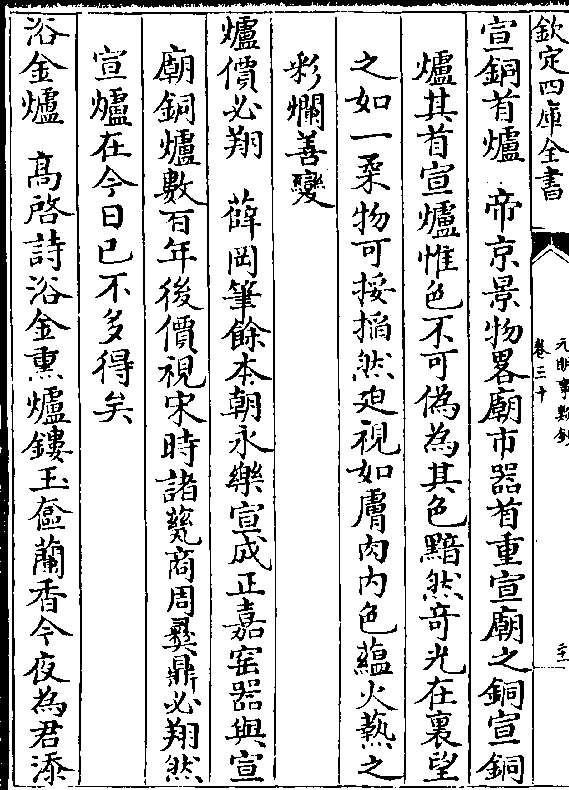 欽定四庫全書
元明事類鈔
卷三十
二十一
宣銅首爐　帝京景物畧廟市器首重宣廟之銅宣銅
爐其首宣爐惟色不可偽為其色黯然奇光在裏望
之如一柔物可挼搯然廹視如膚肉内色藴火熱之
彩爛善變
爐價必翔　薛岡筆餘本朝永樂宣成正嘉窑器與宣
廟銅爐數百年後價視宋時諸甆商周彛鼎必翔然
宣爐在今日已不多得矣
浴金爐　高啓詩浴金熏爐鏤玉奩蘭香今夜為君添